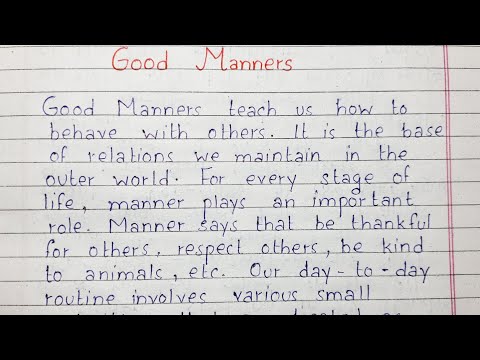 Good Manners
Good Manners teach us how to
behave with others. It is the base
of relations we maintain in the
outer world. For every stage of
life, manner plays an important
role. Manner says that be thankful
for others, respect others, be kind
to animals, etc. Our day-to-day
routine involves various small